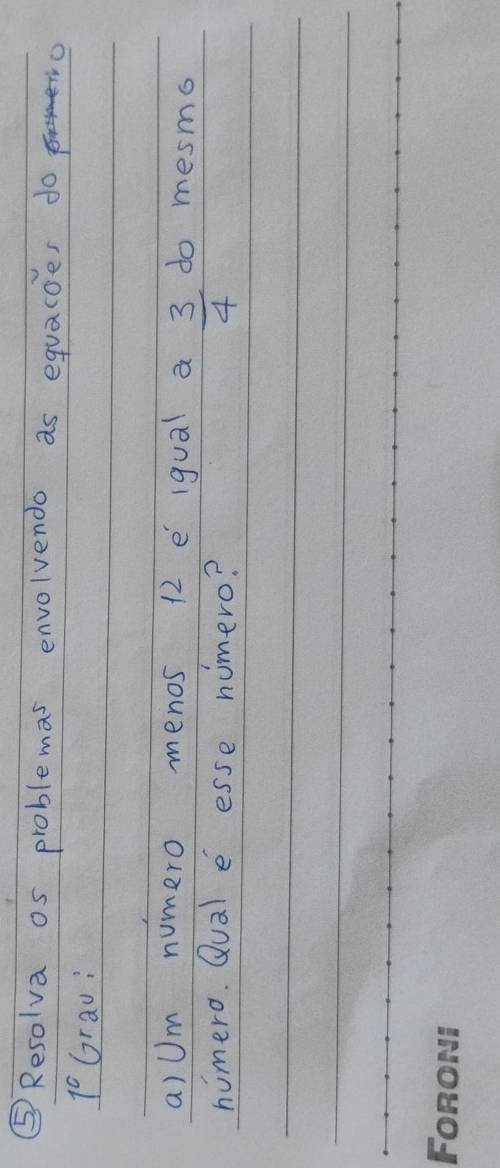 5 Resolva os problemas envolvendo as equacões do primeiro
1º Grau:
a) Um número menos 12 é igual a 3/4 do mesmo
número. Qual é esse número?
FORONI